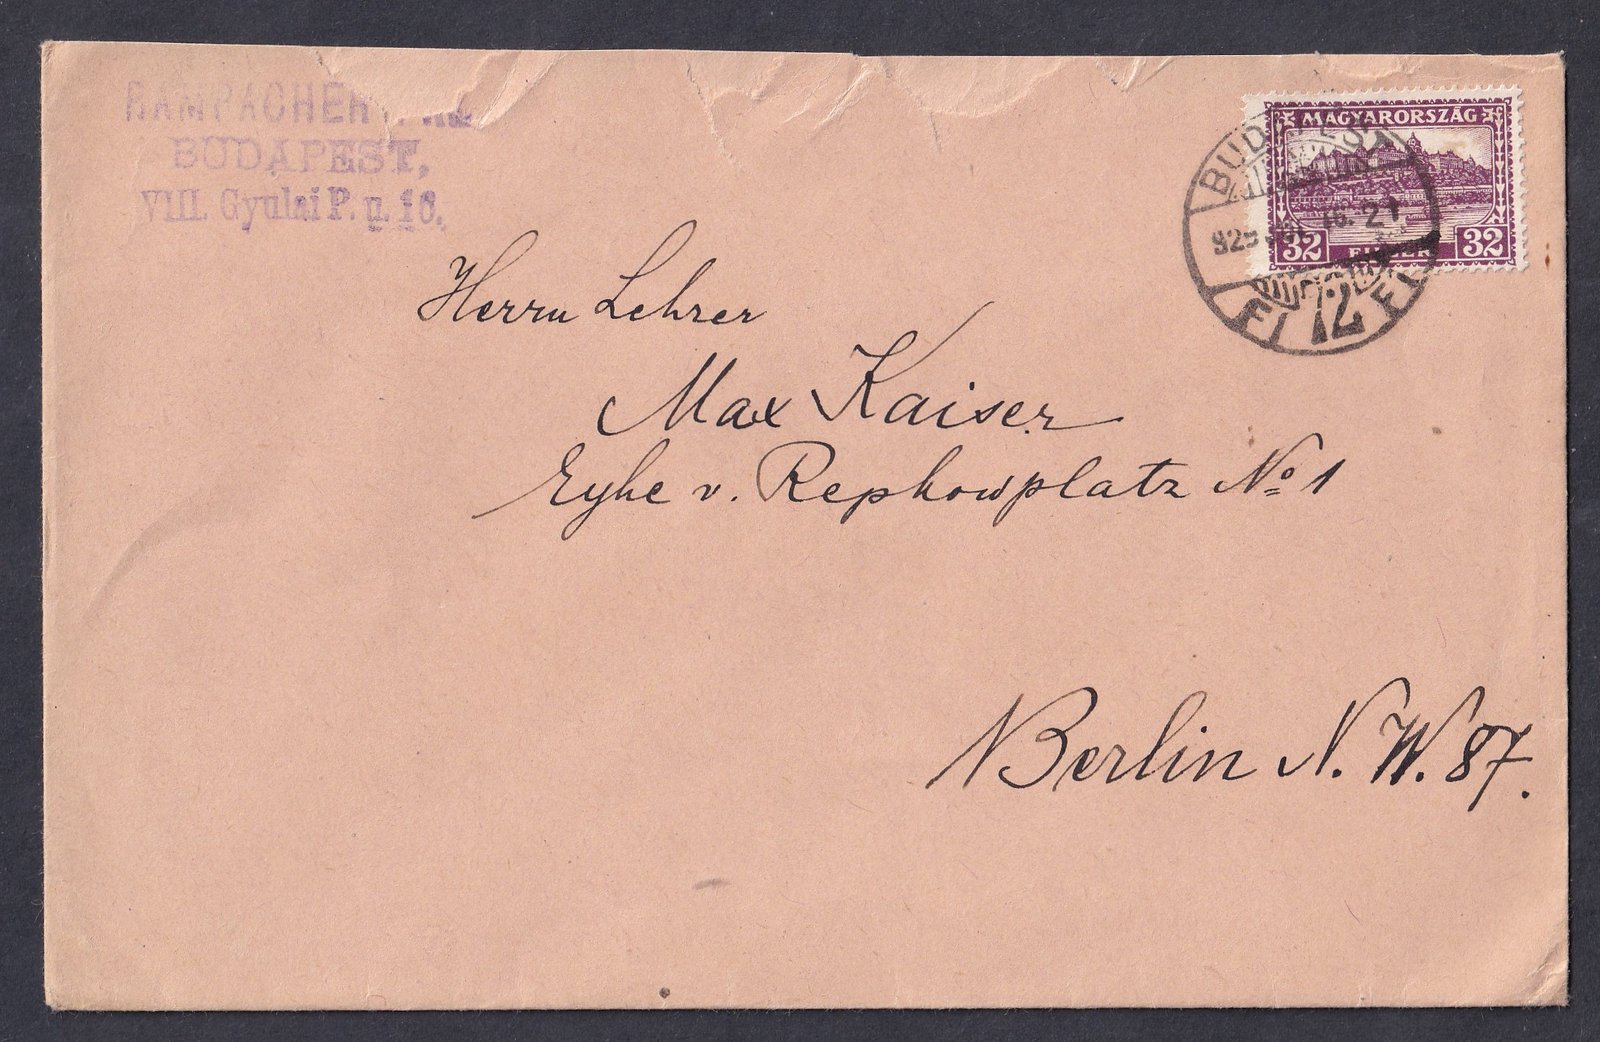 RAMPACHER
BUDAPEST,
VIII. Gyulai P. u. 16.
MAGYARORSZÁG
32 FILLÉR 32
BUDAPEST
21
12
Herrn Lehrer
Max Kaiser
Eyke v. Repkowplatz No 1
Berlin N. W. 87.